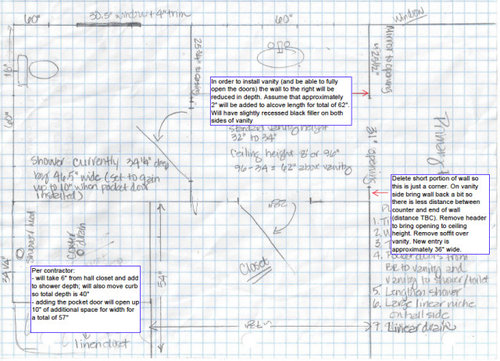 60"
30.5" window + 4" trim
60"
window
In order to install vanity (and be able to fully
open the doors) the wall to the right will be
reduced in depth. Assume that approximately
2" will be added to alcove length for total of 62".
Will have slightly recessed black filler on both
sides of vanity
60"
standard vanity height
32" to 34"
Ceiling height 8' or 96"
96-34 = 62" above vanity
31" opening
Shower currently 34 1/4" deep
by 46.5" wide (set to gain
up to 10" when pocket door
installed)
Delete short portion of wall so
this is just a corner. On vanity
side bring wall back a bit so
there is less distance between
counter and end of wall
(distance TBC). Remove header
to bring opening to ceiling
height. Remove soffit over
vanity. New entry is
approximately 36" wide.
BR to vanity and
vanity to shower/toilet
5. Lengthen shower
6. Large linear niche
on hall side
7. Linear drain
drain
Closet
34 1/4"
Per contractor:
- will take 6" from hall closet and add
to shower depth; will also move curb
so total depth is 40"
- adding the pocket door will open up
10" of additional space for width for
a total of 57"
linen closet